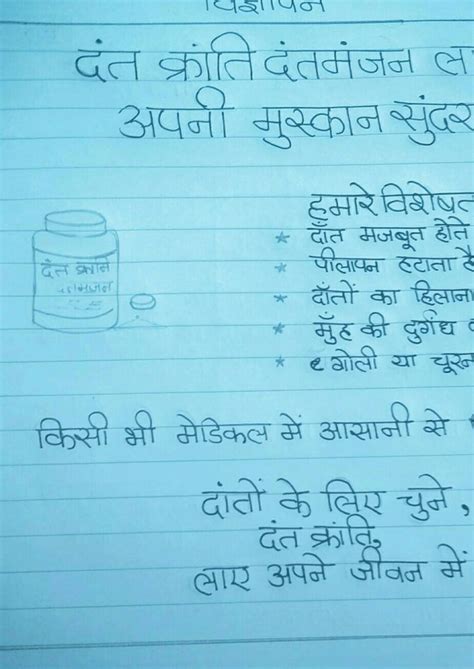 विज्ञापन
दंत क्रांति दंतमंजन ला
अपनी मुस्कान सुंदर
हमारे विशेषत
* दाँत मजबूत होते
* पीलापन हटाता है
* दाँतों का हिलाना
* मुँह की दुर्गंध
* गोली या चूरन
दंत क्रांति
दंतमंजन
किसी भी मेडिकल में आसानी से
दांतों के लिए चुने,
दंत क्रांति,
लाए अपने जीवन में